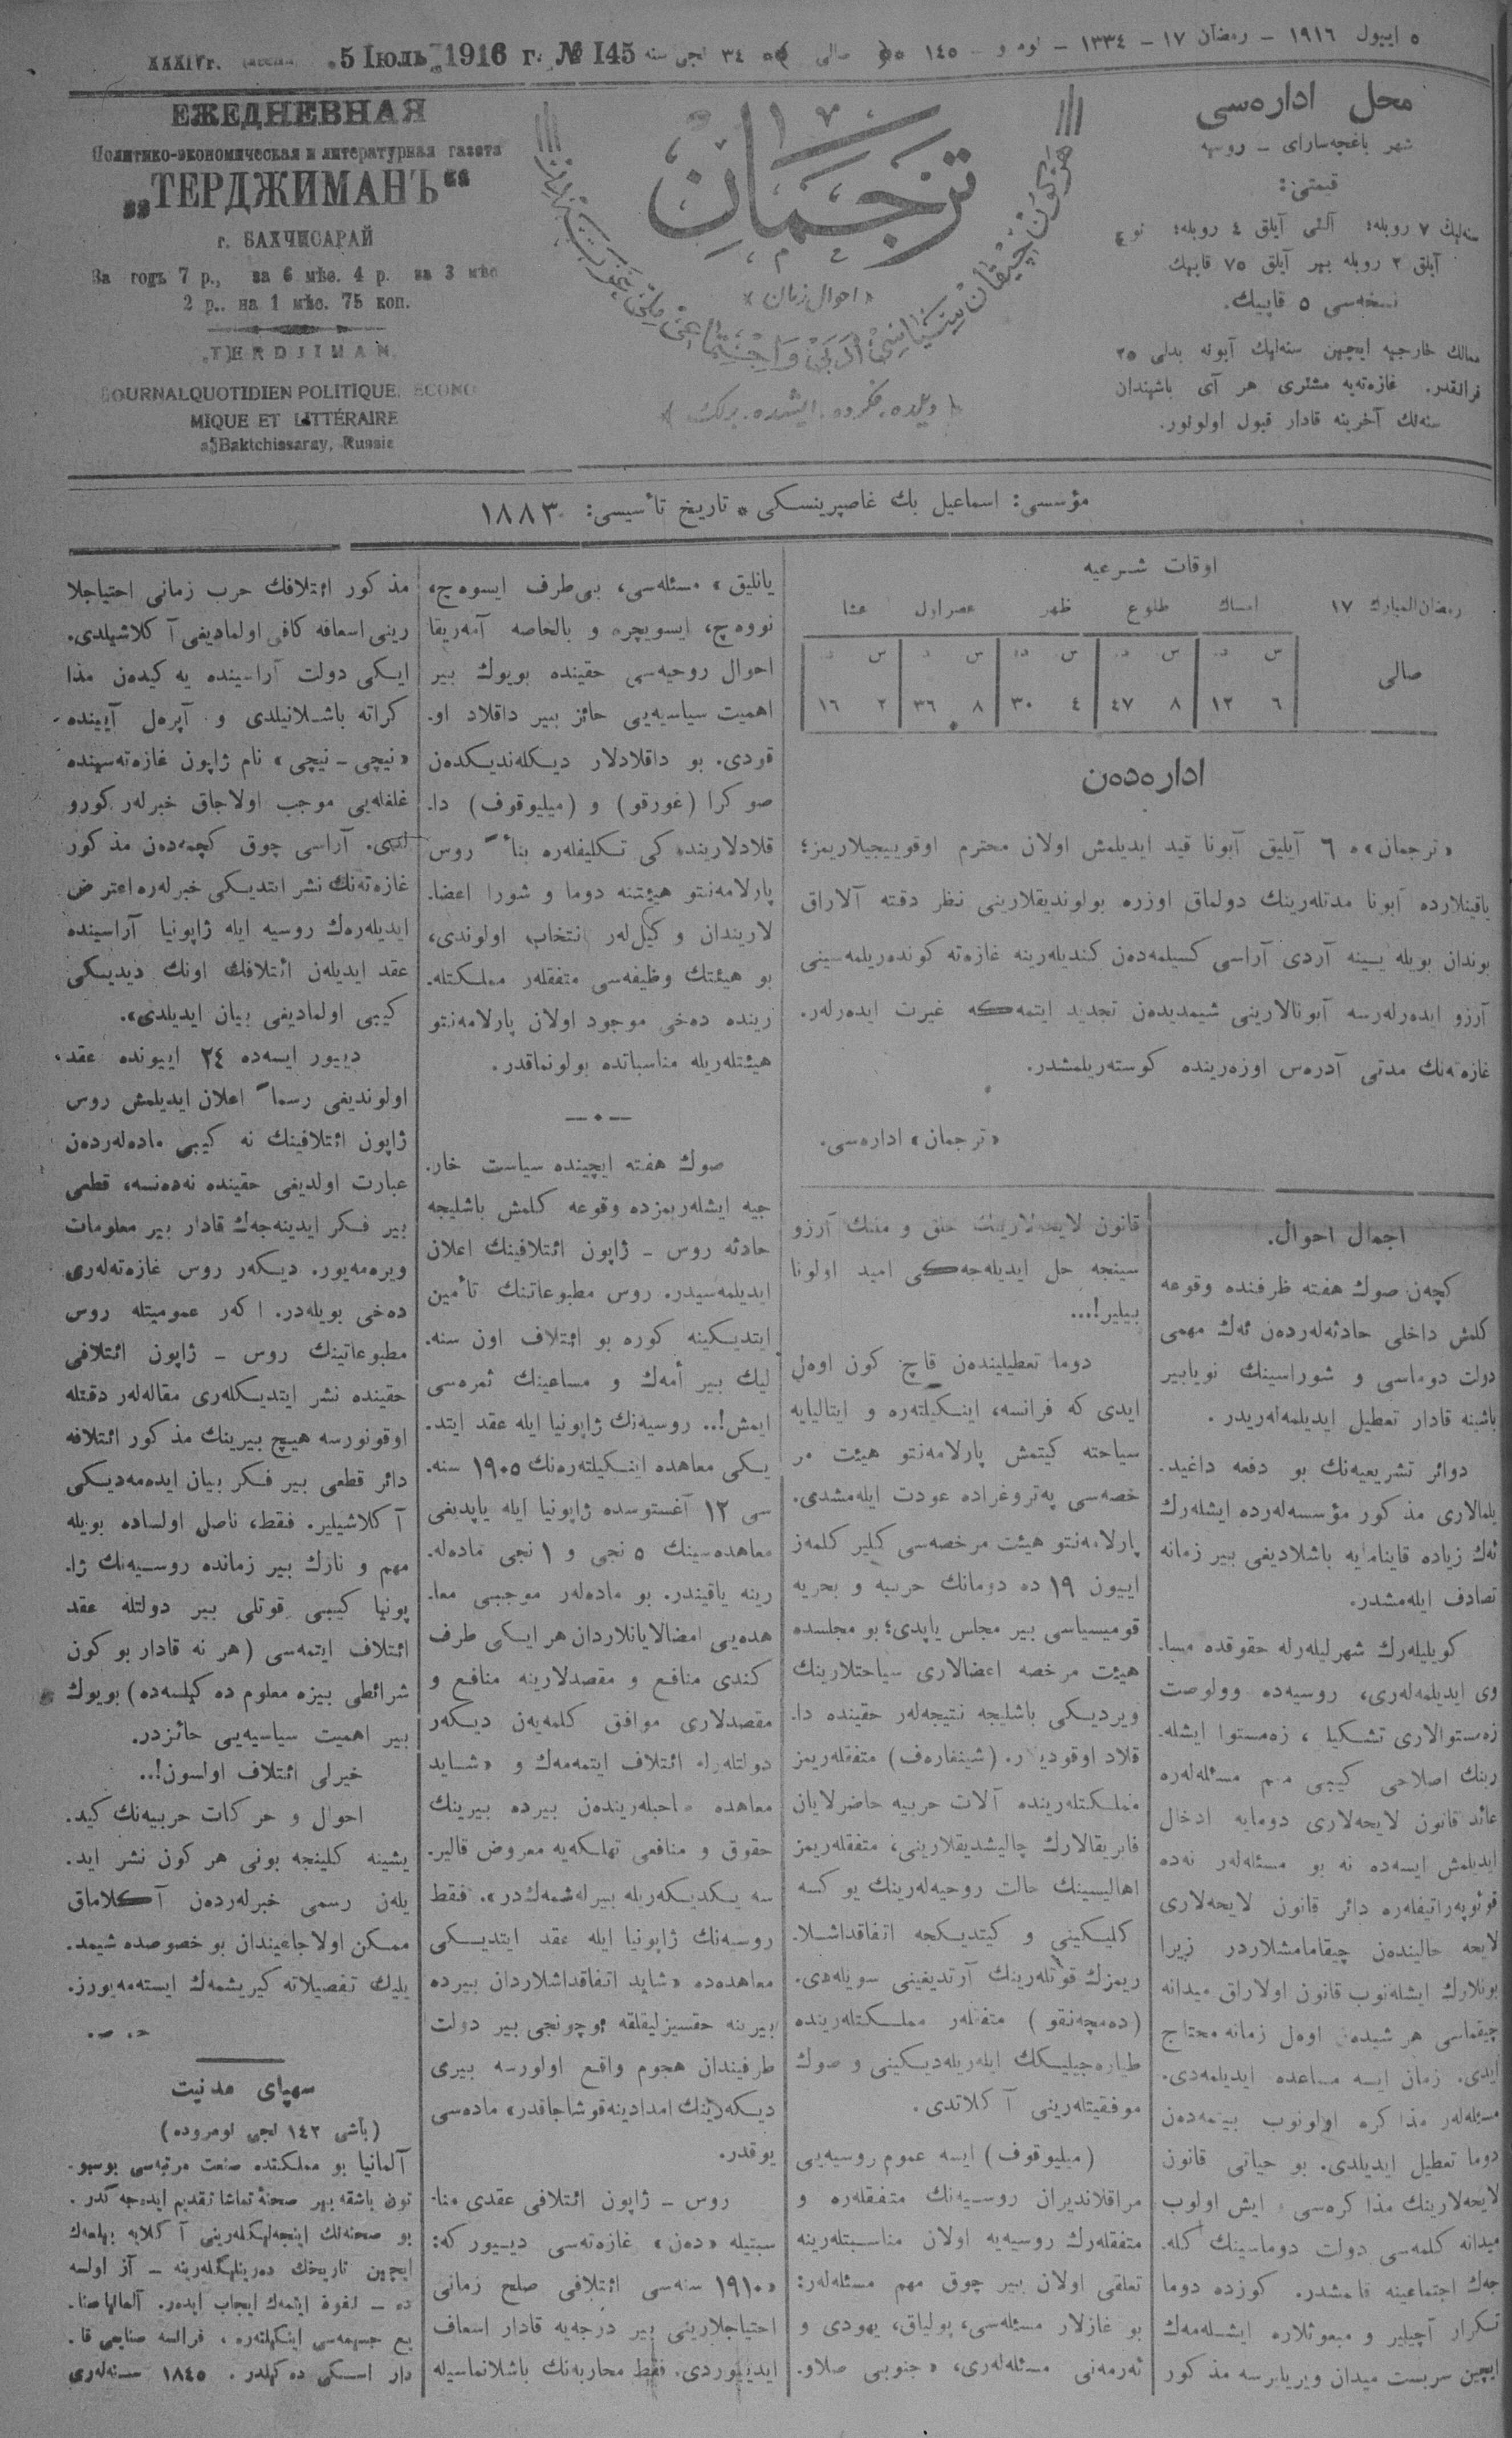 ٥ اييول ١٩١٦ – رمضان ١٧ – ١٣٣٤ – نومرو – ١٤٥ صالى ٣٤ لجى سنه
5 Іюль 1916 г. № 145 XXXIV г.
محل اداره‌سى
شهر باغچه‌سارای – روسيه
قيمتى:
سنه‌ليك ٧ روبله؛ آلتى آيلق ٤ روبله؛
آيلق ٢ روبله بير آيلق ٧٥ قاپيك
نسخه‌سى ٥ قاپيك.
ممالك خارجيه ايچين سنه‌ليك آبونه بدلى ٢٥
فرانقدر. غازه‌ته‌يه مشترى هر آى باشيندان
سنه‌نك آخرينه قادار قبول اولونور.
ترجمان
«احوال زمان»
ЕЖЕДНЕВНАЯ
Политико-экономическая и литературная газета
„ТЕРДЖИМАНЪ“
г. БАХЧИСАРАЙ
За годъ 7 р., за 6 мѣс. 4 р. за 3 мѣс
2 р.. на 1 мѣс. 75 коп.
TERDJIMAN
JOURNAL QUOTIDIEN POLITIQUE, ECONO
MIQUE ET LITTÉRAIRE
à Baktchissaray, Russie
مؤسسى: اسماعيل بك غاصپرينسكى • تاريخ تأسيسى: ١٨٨٣
اوقات شرعيه
رمضان المبارك ١٧ امساك طلوع ظهر عصر اول عشا
صالى
س د س د س د س د س د
٦ ١٢ ٨ ٤٧ ٤ ٣٠ ٨ ٣٦ ٢ ١٦
اداره‌دن
«ترجمان»ه ٦ آيليق آبونا قيد ايديلمش اولان محترم اوقوييجيلاريمز؛
ياقينلارده آبونا مدتله‌رينك دولماق اوزره بولونديقلارينى نظر دقته آلاراق
بوندان بويله يينه آردى آراسى كسيلمه‌دن كنديله‌رينه غازه‌ته كونده‌ريلمه‌سينى
آرزو ايده‌رله‌رسه آبونالارينى شيمديدن تجديد ايتمه‌كه غيرت ايده‌رله‌ر.
غازه‌ته‌نك مدتى آدره‌س اوزه‌رينده كوسته‌ريلمشدر.
«ترجمان» اداره‌سى.
اجمال احوال.
كچه‌ن صوك هفته ظرفنده وقوعه
كلمش داخلى حادثه‌له‌ردن ئه‌ك مهمى
دولت دوماسى و شوراسينك نويابير
باشنه قادار تعطيل ايديلمه‌له‌ريدر.
دوائر تشريعيه‌نك بو دفعه داغيد.
يلمالارى مذكور مؤسسه‌له‌رده ايشله‌رك
ئه‌ك زياده قاينامايه باشلاديغى بير زمانه
تصادف ايله‌مشدر.
كويليله‌رك شهرليله‌رله حقوقده مسا.
وى ايديلمه‌له‌رى، روسيه‌ده وولوصت
زه‌مستوالارى تشكيل، زه‌مستوا ايشله.
رينك اصلاحى كيبى مهم مسئله‌له‌ره
عائد قانون لايحه‌لارى دومايه ادخال
ايديلمش ايسه‌ده نه بو مسئله‌له‌ر نه‌ده
قوئوپه‌راتيفله‌ره دائر قانون لايحه‌لارى
لايحه حاليندن چيقامامشلاردر زيرا
بونلارك ايشله‌نوب قانون اولاراق ميدانه
چيقماسى هر شيدن اوه‌ل زمانه محتاج
ايدى. زمان ايسه مساعده ايديلمه‌دى.
مسئله‌له‌ر مذاكره اولونوب بيتمه‌دن
دوما تعطيل ايديلدى. بو حياتى قانون
لايحه‌لارينك مذاكره‌سى، ايش اولوب
ميدانه كلمه‌سى دولت دوماسينك كله.
جه‌ك اجتماعينه قالمشدر. كوزده دوما
تكرار آچيلير و مبعوثلاره ايشله‌مه‌ك
ايچين سربست ميدان ويريليرسه مذكور
قانون لايحه‌لارينك خلق و ملتك آرزو
سينجه حل ايديله‌جه‌كى اميد اولونا
بيلير!...
دوما تعطيليندن قاچ كون اوه‌ل
ايدى كه فرانسه، اينكيلته‌ره و ايتاليايه
سياحته كيتمش پارلامه‌نتو هيئت مر
خصه‌سى په‌تروغراده عودت ايله‌مشدى.
پارلامه‌نتو هيئت مرخصه‌سى كلير كلمه‌ز
اييون ١٩ ده دومانك حربيه و بحريه
قوميسياسى بير مجلس ياپدى؛ بو مجلسده
هيئت مرخصه اعضالارى سياحتلارينك
ويرديكى باشليجه نتيجه‌له‌ر حقينده دا.
قلاد اوقوديلر. (شينغاره‌ف) متفقله‌ريمز
مملكتله‌رينده آلات حربيه حاضرلايان
فابريقالارك چاليشديقلارينى، متفقله‌ريمز
اهاليسينك حالت روحيه‌له‌رينك يوكسه
كليكينى و كيتديكجه اتفاقداشلا.
ريمزك قوتله‌رينك آرتديغينى سويله‌دى.
(ده‌مچه‌نقو) متفقله‌ر مملكتله‌رينده
طياره‌جيليكك ايله‌ريله‌ديكينى و صوك
موفقيتله‌رينى آكلاتدى.
(ميليوقوف) ايسه عموم روسيه‌يى
مراقلانديران روسيه‌نك متفقله‌ره و
متفقله‌رك روسيه‌يه اولان مناسبتله‌رينه
تعلقى اولان بير چوق مهم مسئله‌له‌ر:
بو غازلار مسئله‌سى، پولياق، يهودى و
ئه‌رمه‌نى مسئله‌له‌رى، «جنوبى صلاو.
يانليق» مسئله‌سى، بى‌طرف ايسوه‌ج،
نووه‌ج، ايسويچره و بالخاصه آمه‌ريقا
احوال روحيه‌سى حقينده بويوك بير
اهميت سياسيه‌يى حائز بير داقلاد او.
قودى. بو داقلادلار ديكله‌نديكدن
صوكرا (غورقو) و (ميليوقوف) دا.
قلادلارينده‌كى تكليفله‌ره بناءً روس
پارلامه‌نتو هيئتنه دوما و شورا اعضا.
لاريندان وكيل‌له‌ر انتخاب اولوندى،
بو هيئتك وظيفه‌سى متفقله‌ر مملكتله.
رينده ده‌خى موجود اولان پارلامه‌نتو
هيئتله‌ريله مناسباتده بولونماقدر.
صوك هفته ايچينده سياست خار.
جيه ايشله‌ريمزده وقوعه كلمش باشليجه
حادثه روس – ژاپون ائتلافينك اعلان
ايديلمه‌سيدر. روس مطبوعاتنك تأمين
ايتديكينه كوره بو ائتلاف اون سنه.
ليك بير أمه‌ك و مساعينك ثمره‌سى
ايمش!.. روسيه‌نك ژاپونيا ايله عقد ايتد.
يكى معاهده اينكيلته‌ره‌نك ١٩٠٥ سنه.
سى ١٢ آغستوسده ژاپونيا ايله ياپديغى
معاهده‌سينك ٥ نجى و ١ نجى ماده‌له.
رينه ياقيندر. بو ماده‌له‌ر موجبسى معا.
هده‌يى امضالايانلاردان هر ايكى طرف
كندى منافع و مقصدلارينه منافع و
مقصدلارى موافق كلمه‌يه‌ن ديكه‌ر
دولتله‌رله ائتلاف ايتمه‌مه‌ك و «شايد
معاهده صاحبله‌ريندن بيرده بيرينك
حقوق و منافعى تهلكه‌يه معروض قالير.
سه يكديكه‌ريله بيرله‌شمه‌ك‌در». فقط
روسيه‌نك ژاپونيا ايله عقد ايتديكى
معاهده‌ده «شايد اتفاقداشلاردان بيرده
بيرينه حقسيزليقلقه اوچونجى بير دولت
طرفيندان هجوم واقع اولورسه بيرى
ديكه‌رينك امدادينه قوشاجاقدر» ماده‌سى
يوقدر.
روس – ژاپون ائتلافى عقدى منا.
سبتيله «ده‌ن» غازه‌ته‌سى دييور كه:
«١٩١٠ سنه‌سى ائتلافى صلح زمانى
احتياجلارينى بير درجه‌يه قادار اسعاف
ايدييوردى. فقط محاربه‌نك باشلانماسيله
مذكور ائتلافك حرب زمانى احتياجلا
رينى اسعافه كافى اولماديغى آكلاشيلدى.
ايكى دولت آراسينده يه كيدن مذا
كراته باشلانيلدى و آپره‌ل آيينده
«نيچى – نيچى» نام ژاپون غازه‌ته‌سينده
غلغله‌يى موجب اولاجاق خبرله‌ر كورو
لدى. آراسى چوق كچمه‌دن مذكور
غازه‌ته‌نك نشر ايتديكى خبرله‌ره اعتراض
ايديله‌ره‌ك روسيه ايله ژاپونيا آراسينده
عقد ايديله‌ن ائتلافك اونك ديديكى
كيبى اولماديغى بيان ايديلدى».
دييور ايسه‌ده ٢٤ اييونده عقد
اولونديغى رسماً اعلان ايديلمش روس
ژاپون ائتلافينك نه كيبى ماده‌له‌ردن
عبارت اولديغى حقينده نه‌ده‌نسه، قطعى
بير فكر ايدينه‌جه‌ك قادار بير معلومات
ويره‌مه‌يور. ديكه‌ر روس غازه‌ته‌له‌رى
ده‌خى بويله‌در. اكه‌ر عموميتله روس
مطبوعاتينك روس – ژاپون ائتلافى
حقينده نشر ايتديكله‌رى مقاله‌له‌ر دقتله
اوقونورسه هيچ بيرينك مذكور ائتلافه
دائر قطعى بير فكر بيان ايده‌مه‌ديكى
آكلاشيلير. فقط، ناصل اولساده بويله
مهم و نازك بير زمانده روسيه‌نك ژا.
پونيا كيبى قوتلى بير دولتله عقد
ائتلاف ايتمه‌سى (هر نه قادار بو كون
شرائطى بيزه معلوم ده كيلسه‌ده) بويوك
بير اهميت سياسيه‌يى حائزدر.
خيرلى ائتلاف اولسون!..
احوال و حركات حربيه‌نك كيد.
يشينه كلينجه بونى هر كون نشر ايد.
يله‌ن رسمى خبرله‌ردن آكلاماق
ممكن اولاجاغيندان بو خصوصده شيمد.
يليك تفصيلاته كيريشمه‌ك ايسته‌مه‌يورز.
ح. ص.
سيپاى مدنيت
(باشى ١٤٢ لجى نومروده)
آلمانيا بو مملكتده صنعت مرتبه‌سى بوسبو.
تون باشقه بير صحنهٔ تماشا تقديم ايده‌جه‌كدر.
بو صحنه‌نك اينجه‌ليكله‌رينى آكلايه بيلمه‌ك
ايچين تاريخك ده‌رينليكله‌رينه – آز اولسه
ده – نفوذ ايتمه‌ك ايجاب ايده‌ر. آلمانيا صنا.
يع جسيمه‌سى اينكيلته‌ره، فرانسه صنايعى قا.
دار اسكى ده كيلدر. ١٨٤٥ سنه‌له‌رى